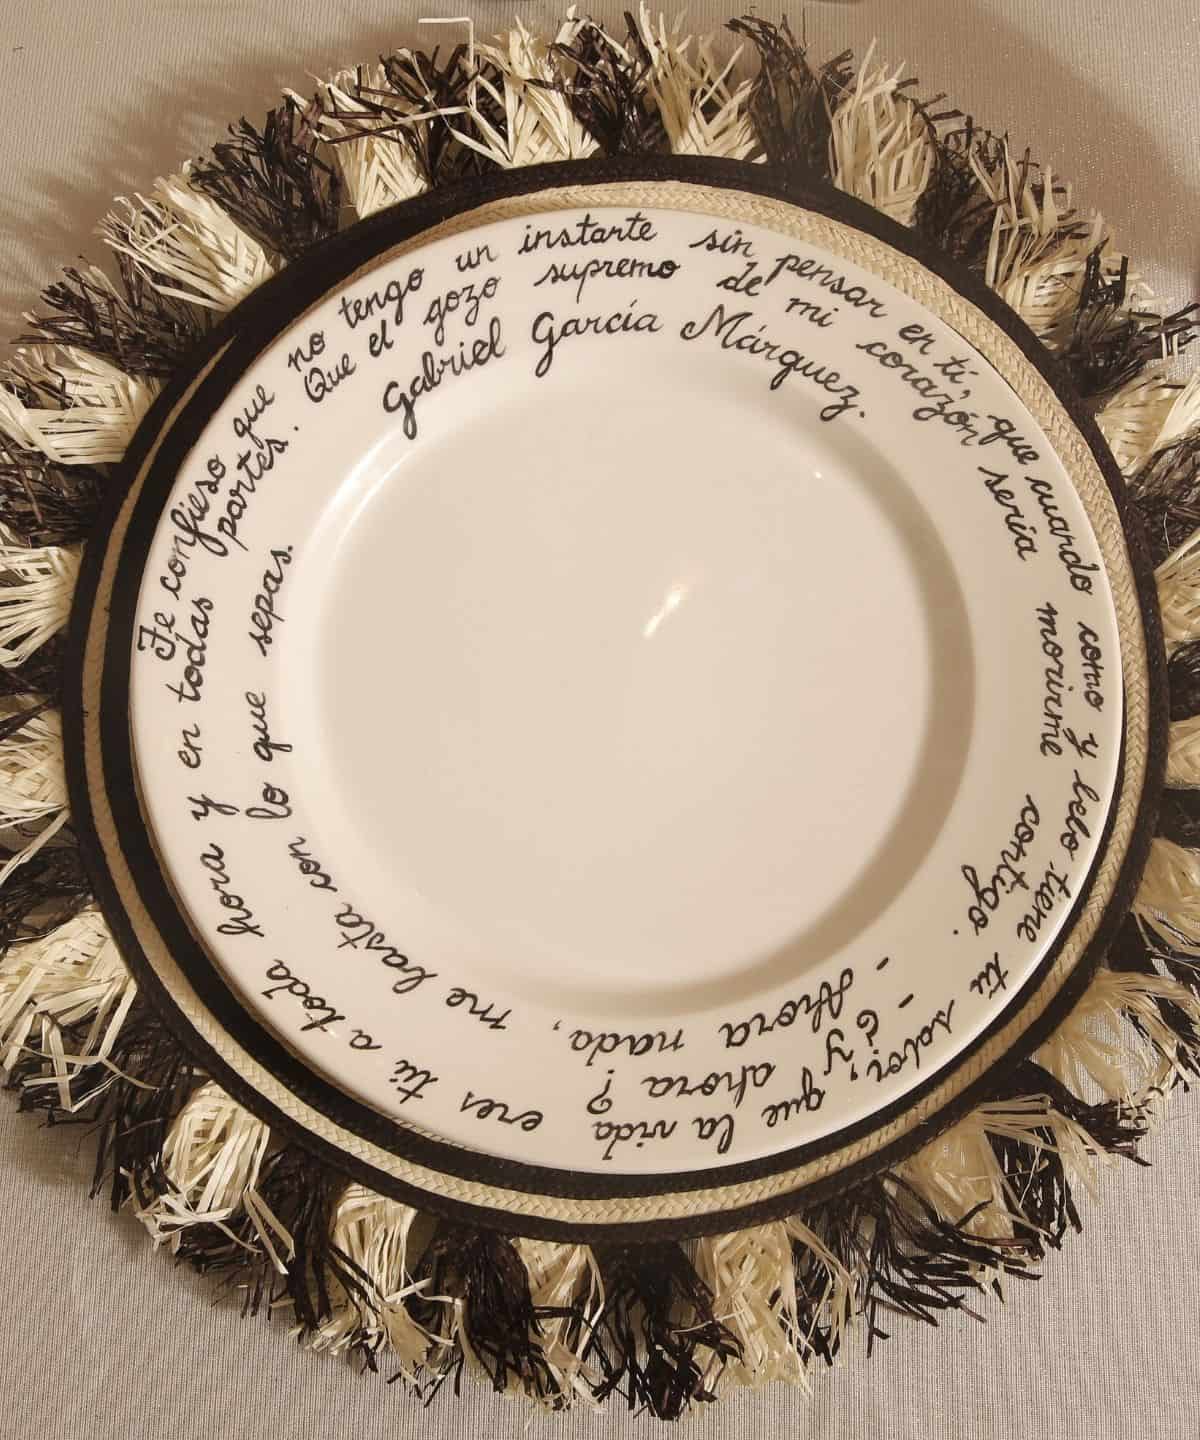 Te confieso que no tengo un instante sin pensar en ti, que cuando como y bebo tiene tú sabor, que la vida eres tú a toda hora y en todas partes. Que el gozo supremo de mi corazón sería morirme contigo.
- ¿y ahora?
- Ahora nada, me basta con lo que sepas.
Gabriel García Márquez.